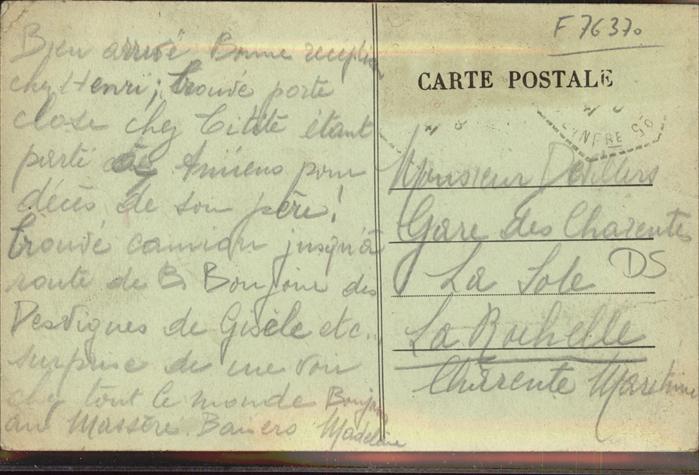 F 76370
CARTE POSTALE
Bien arrivé Bonne reception
chez Henri; trouvé porte
close chez Titité étant
parti Amiens pour
décès de son père!
trouvé camion jusqu'à
route de B Bonjour des
Desvignes de Gisèle etc..
surprise de me voir
chez tout le monde Bonjour
au Massère. Baisers Madeleine
Monsieur Devillers
Gare des Charentes
La Sole
DS
La Rochelle
Charente Maritime